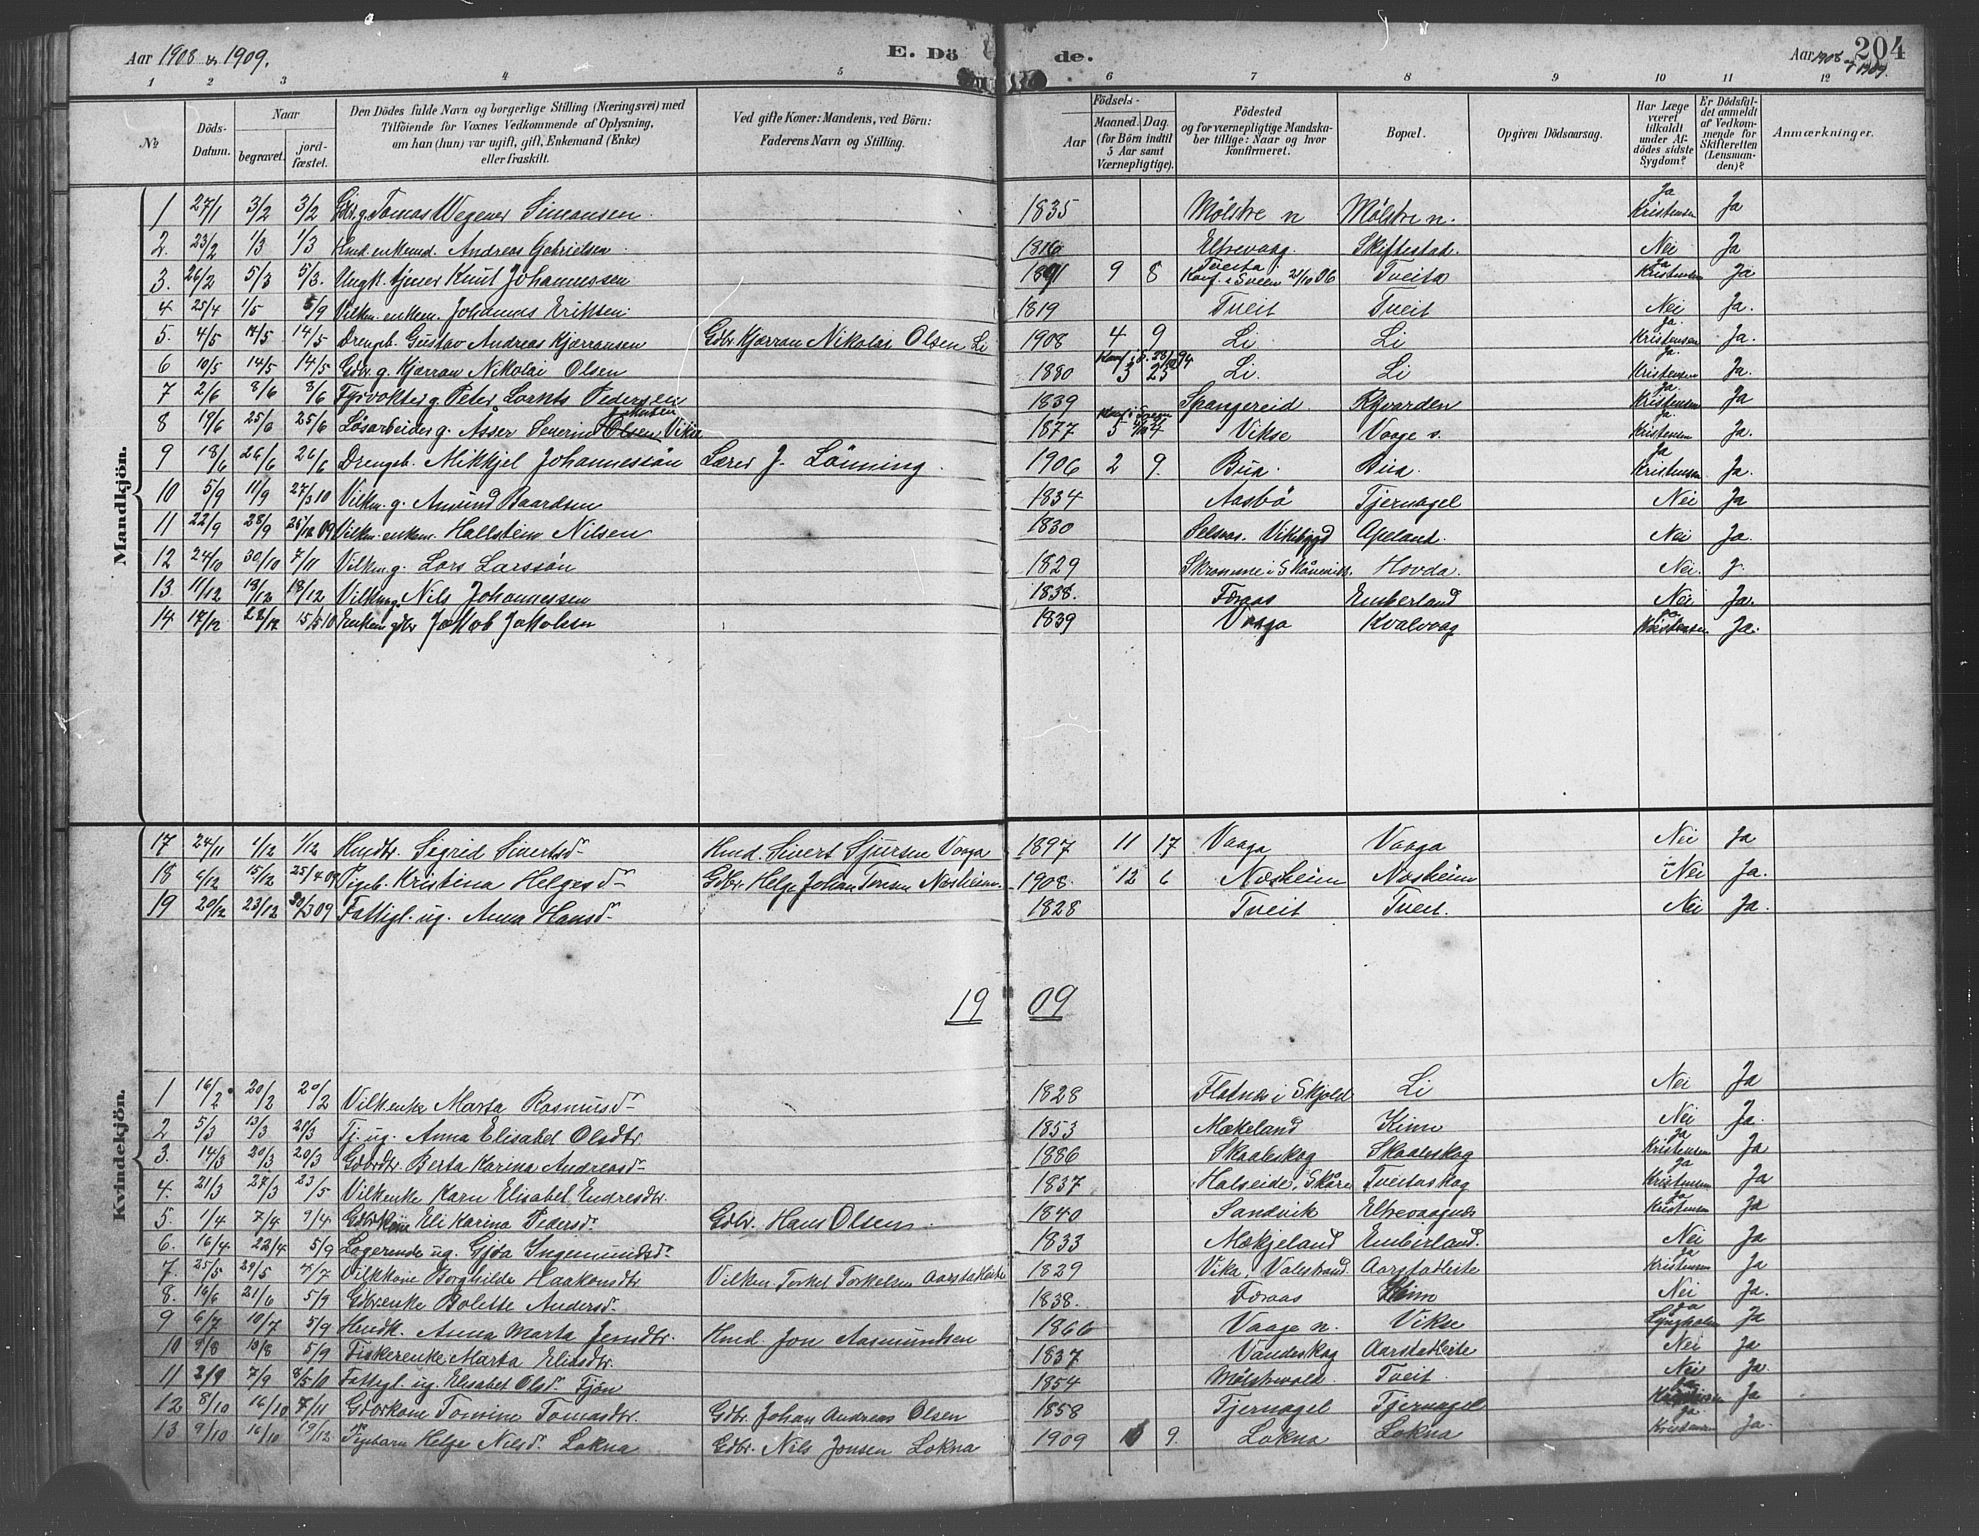 Aar 1908 & 1909.
E. Dö
de.
Aar 1908 & 1909.
204
1 2 3 4 5 6 7 8 9 10 11 12
No
Döds-Datum.
Naar
begravet.
jord-fæstet.
Den Dödes fulde Navn og borgerlige Stilling (Næringsvei) med
Tilföiende for Voxnes Vedkommende af Oplysning,
om han (hun) var ugift, gift, Enkemand (Enke)
eller fraskilt.
Ved gifte Koner: Mandens, ved Börn:
Faderens Navn og Stilling.
Födsels-
Aar
Maaned. Dag.
(for Börn indtil
5 Aar samt
Værnepligtige).
Födested
og for værnepligtige Mandska-
ber tillige: Naar og hvor
konfirmeret.
Bopæl.
Opgiven Dödsaarsag.
Har Læge
været
tilkaldt
under Af-
dödes sidste
Sygdom?
Er Dödsfal-
det anmeldt
af Vedkom-
mende for
Skifteretten
(Lensman-
den)?
Anmærkninger.
Mandkjön.
1 27/1 3/2 3/2 Gbr. g. Tomas Wegener Simonsen. 1835 Mölstre n Mölstre n. Ja Kristensen Ja
2. 23/2 1/3 1/3 Hmd. enkemd. Andreas Gabrielsen 1816 Eltrevaag. Skiftestad. Nei Ja
3. 26/2 5/3 5/3. Ungk. tjener Knut Johannessen 1891 9 8 Tveita Konf. i Sveen 21/10 06 Tveita Ja Kristensen Ja
4 25/4 1/5 5/9 Vilkm. enkem. Johannes Eriksen 1819 Tveit Tveit Nei Ja.
5. 4/5 14/5 14/5 Drengb. Gustav Andreas Kjærransen Gdbr. Kjærran Nikolai Olsen Li 1908 4 9 Li Li Ja. Kristensen Ja.
6 10/5 14/5 14/5 Gdbr. g. Kjærran Nikolai Olsen 1880 3 23 Li. Li Ja Kristensen Ja.
7 2/6 8/6 8/6 Fyrvokter g. Peter Lornts Pedersen 1839 Spangereid. Ryvarden Ja Kristensen Ja
8 19/6 25/6 25/6 Lösarbeider g. Asser Severin Olsen Vikse 1877 5 4 Vikse Vaage s. Ja. Kristensen Ja.
9 18/6 26/6 26/6 Drengeb. Mikkjel Johannessön Lærer J. Lönning. 1906 2 9. Bua. Bua. Ja Kristensen Ja.
10 5/9 11/9 27/3 10 Vilkm. g. Amund Baardsen 1834 Aasbö Tjernagel Nei Ja
11 22/9 28/9 25/12 09 Vilkm. enkem. Hallstein Nilsen 1830 Selsaas. Vikebygd Apeland. Nei Ja.
12 24/10 30/10 7/11 Vilkm g. Lars Larssön 1829 Skromme i Skånevik. Hovda. Nei. J.
13. 11/12 18/12 18/12 Vilkm g. Nils Johannessen 1838. Færaas Emberland Nei Ja.
14 17/12 28/12 15/5 10 Enkem. gdbr Jakob Jakobsen 1839 Vaaga Kvalvaag Ja Kristensen Ja.
Kvindekjön.
17 24/11 1/12 1/12 Hmdtr. Sigrid Sivertsd. Hmd. Sivert Sjursen Vaaga 1897 11 17 Vaaga Vaaga Nei Ja
18 6/12 15/12 25/4 09 Pigeb. Kristina Helgesd. Gdbr. Helge Johan Tonsen Næsheim. 1908. 12 6 Næsheim Næsheim Nei Ja.
19 20/12 23/12 30/3 09 Fattigl. ug. Anna Hansd. 1828 Tveit Tveit. Nei Ja.
19 09
1 16/2 20/2 20/2 Vilk.enke Marta Rasmusd. 1828 Flatnæs i Skjold Li Nei Ja
2 5/3 13/3 21/3 Tj. ug. Anna Elisabet Olsdtr. 1853 Mækeland Kinn Nei Ja.
3. 14/3 20/3 20/3 Gdbrdtr. Berta Karina Andreasd. 1886 Skaaleskog Skaaleskog Ja Kristensen Ja
4. 21/3 27/3 23/5 Vilkenke Kari Elisabet Endresdtr. 1837 Halseide, Skåre Tveitaskog Ja Kristensen Ja
5. 1/4 7/4 9/4 Gdbrkone Eli Karina Pedersd. Gdbr. Hans Olsen. 1840 Sandvik Eltrevaagnes Ja Kristensen Ja
6. 16/4 22/4 5/9 Logerende ug. Gjöa Ingemundsd. 1833 Mækjeland Emberland. Nei Ja
7. 25/5 29/5 4/7 Vilkkone Borghilde Haakonsdtr. Vilkm. Torkel Torkelsen Aarstadleite 1829 Vika, Valestrand. Aarstadleite Ja Kristensen Ja
8. 16/6 21/6 5/9 Gdbrenke Bolette Andersd. 1838. Færaas Kinn Nei Ja.
9 6/7 10/7 5/9 Hmdk. Anna Marta Jensdtr. Hmd. Jon Aasmundsen 1866 Vaage n. Vikse Ja Lyngholm Ja
10 9/8 13/8 5/9 Fiskerenke Marta Eliasdtr. 1837 Vandaskog Aarstadleite Nei Ja
11 2/9 7/9 8/5 10 Fattigl. ug. Elisabet Olsd. Tjön 1854 Mölstrevold. Tveit. Nei Ja
12 8/10 16/10 7/11 Gdbrkone Tomine Tomasdtr. Gdbr. Johan Andreas Olsen 1858 Tjernagel Tjernagel Ja Kristensen Ja
13 9/10 16/10 19/12 Pigebarn Helge Nilsd. Lokna Gdbr. Nils Jonsen Lokna 1909 9. Lokna Lokna Ja. Kristensen Ja.